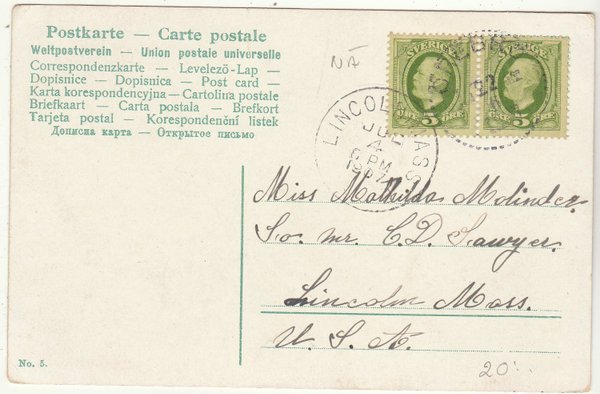 Postkarte — Carte postale
Weltpostverein — Union postale universelle
Correspondenzkarte — Levelező-Lap —
Dopisnice — Dopisnica — Post card —
Karta korespondencyjna — Cartolina postale
Briefkaart — Carta postala — Brefkort
Tarjeta postal — Korespondenční listek
Дописна карта — Открытое письмо
NÄ
SVERIGE
SVERIGE
5 ÖRE
5 ÖRE
22
LINCOLN MASS
JUL
4
6 PM
1907
Miss Mathilda Molinder.
So. mr. C.D. Sawyer.
Lincoln Mass.
U. S. A.
No. 5.
20:-